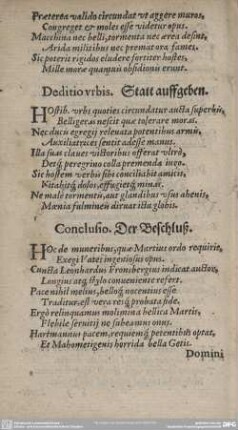 Præterea valido circundat vt aggere muros,
Congreget & moles esse videtur opus.
Macchina nec belli, tormenta nec ærea desint,
Arida militibus nec prematura fames.
Sic poteris rigidos eludere fortiter hostes,
Mille moræ quamuis obsidionis erunt.
Deditio vrbis. Statt auffgeben.
HOstib. vrbs quoties circundatur aucta superbis,
Belligeras nescit quæ tolerare moras.
Nec ducis egregij releuata potentibus armis,
Auxiliatrices sentit adesse manus.
Illa suas claues victoribus offerat vltrò,
Detq́; peregrino colla premenda iugo.
Sic hostem verbis sibi conciliabit amicis,
Vitabitq́; dolos, effugietq́; minas.
Ne malè tormentis, aut glandibus vsus ahenis,
Mœnia fulmineis diruat icta globis.
Conclusio. Der Beschluß.
HOc de muneribus, quæ Martius ordo requirit,
Exegi Vatis ingeniosus opus.
Cuncta Leonhardus Fronsbergius indicat auctor,
Longius atq́; stylo conueniente refert.
Pace nihil melius, belloq́; nocentius esse
Traditur, est vera resq́; probata fide.
Ergò relinquamus molimina bellica Martis,
Flebile seruitij ne subeamus onus.
Hartmannus pacem, requiemq́; potentibus optat,
Et Mahometigenis horrida bella Getis.
Domini